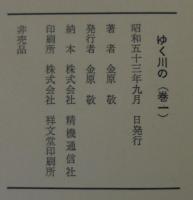 ゆく川の(巻一)
昭和五十三年九月 日発行
著者 金原敬
発行者 金原敬
納本 株式会社 精機通信社
印刷所 株式会社 祥文堂印刷所
非売品